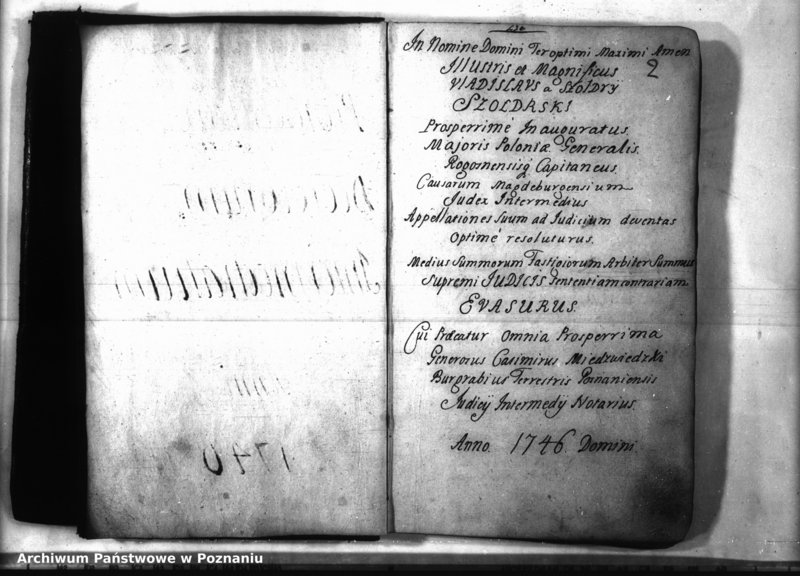 In Nomine Domini Teroptimi Maximi Amen
2
Illustris et Magnificus
VlADISLAVS a Szoldry
SZOLDRSKI
Prosperrimé Inauguratus.
Majoris Poloniæ Generalis.
Rogoznensisq Capitaneus.
Causarum Magdeburgensium
Judex Intermedius
Appellationes suum ad Judicium deventas
Optimé resoluturus.
Medius Summorum Fastigiorum Arbiter Summus
Supremi JUDICIS Sententiam contrariam
EVASURUS.
Cui Præcatur Omnia Prosperrima
Generosus Casimirus Miedzwiedzki
Burgrabius Terrestris Posnaniensis
Judicij Intermedij Notarius.
Anno. 1746 Domini
Archiwum Państwowe w Poznaniu